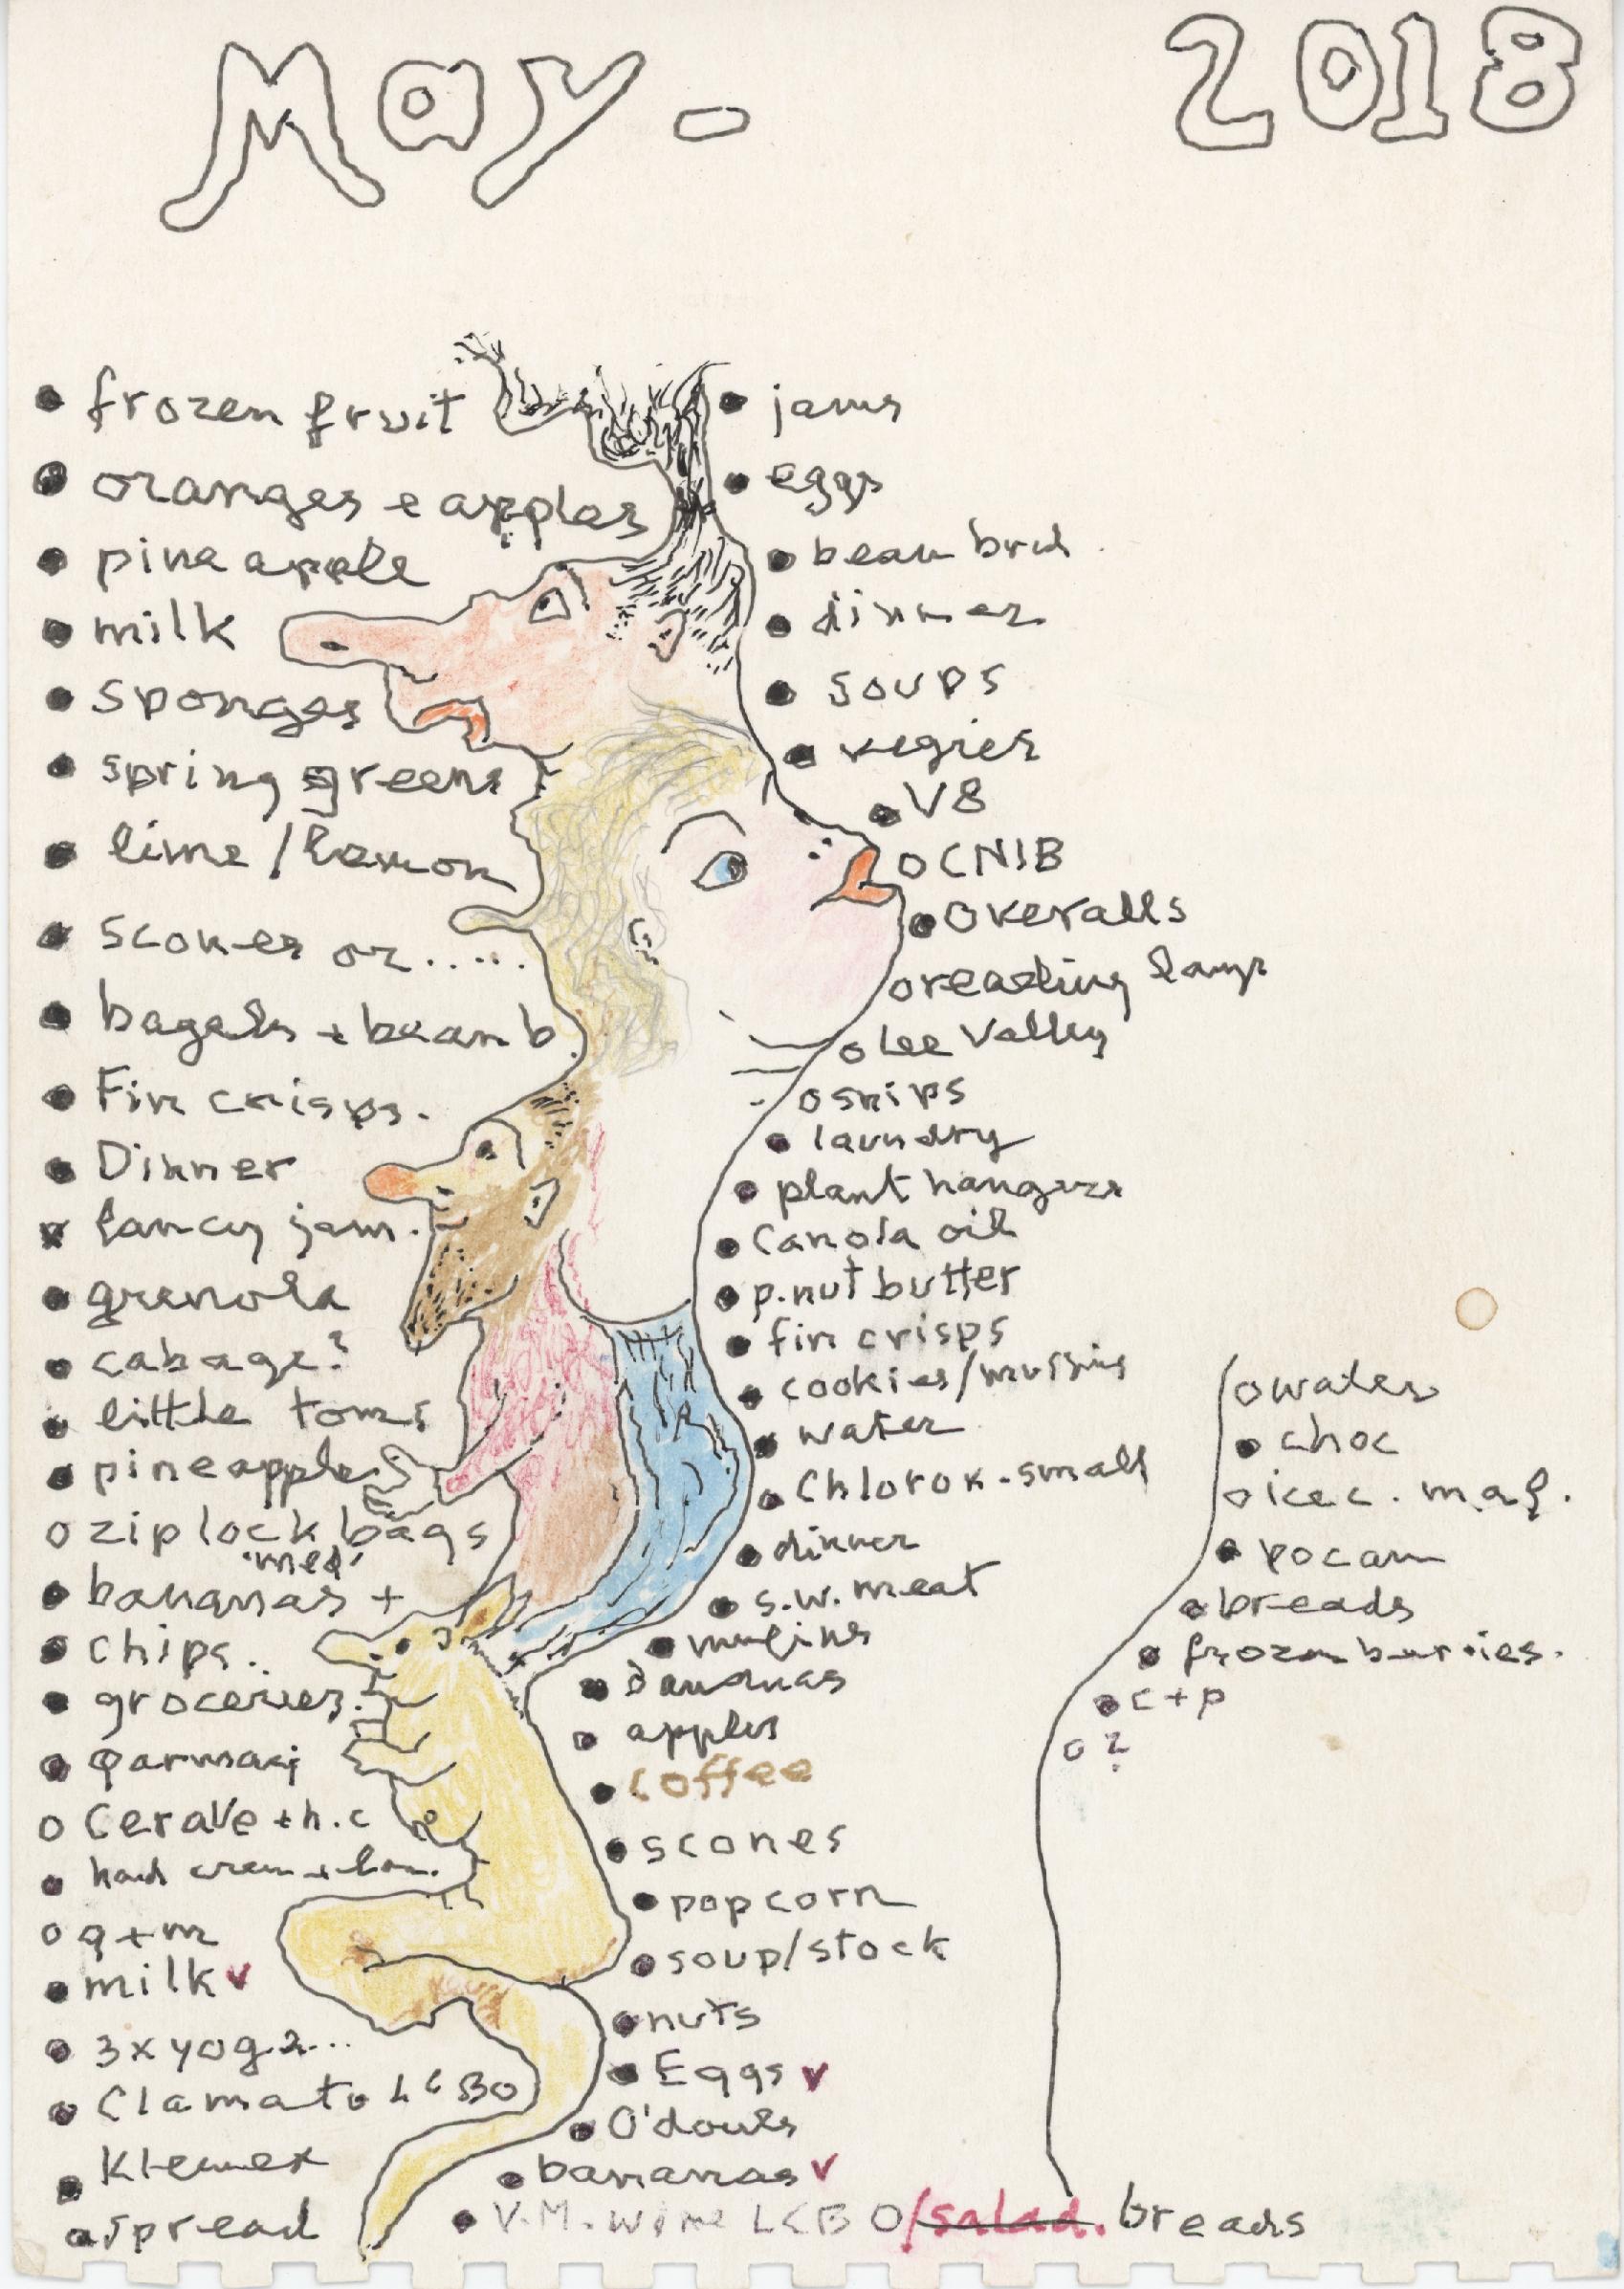 May - 2018
frozen fruit
oranges + apples
pineapple
milk
sponges
spring greens
lime / lemon
scones or.....
bagels + bean b
Fin crisps.
Dinner
fancy jam.
grenola
cabage?
little toms
pineapple
zip lock bags
"med"
bananas +
chips..
groceries.
parmaj
CeraVe + h.c
hand crem +
q + m
milk v
3 x yoga...
Clamato LCBO
Kleenex
spread
jams
eggs
bean brd.
dinner
soups
vegies
V8
CNIB
overalls
reading lamp
Lee Valley
snips
laundry
plant hangers
Canola oil
p.nut butter
fin crisps
cookies/muffins
water
Chlorox - small
dinner
s.w. meat
bananas
apples
coffee
scones
popcorn
soup/stock
nuts
Eggs v
O'douls
bananas v
V.M. wine LCBO/salad. breads
water
choc
icec. mag.
breads
frozen burries.
c + p
?